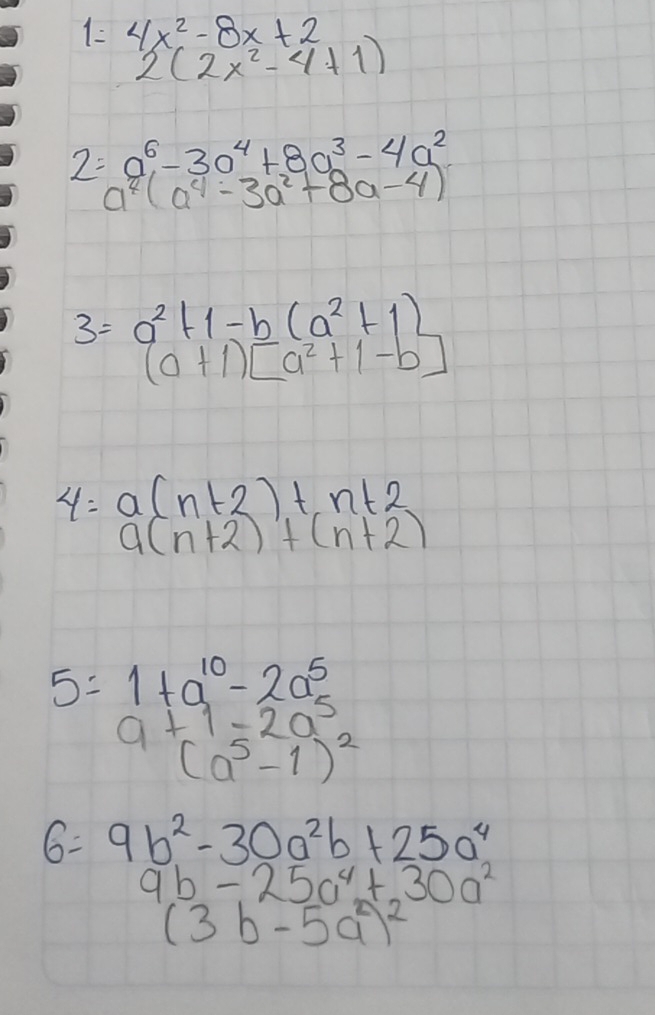 1= 4x² - 8x + 2
2(2x² - 4 + 1)
2= a⁶ - 3a⁴ + 8a³ - 4a²
a²(a⁴ - 3a² + 8a - 4)
3= a² + 1 - b(a² + 1)
(a + 1)[a² + 1 - b]
4= a(n+2) + n+2
a(n+2) + (n+2)
5= 1 + a¹⁰ - 2a⁵
a + 1 - 2a⁵
(a⁵ - 1)²
6= 9b² - 30a²b + 25a⁴
9b - 25a⁴ + 30a²
(3b - 5a²)²